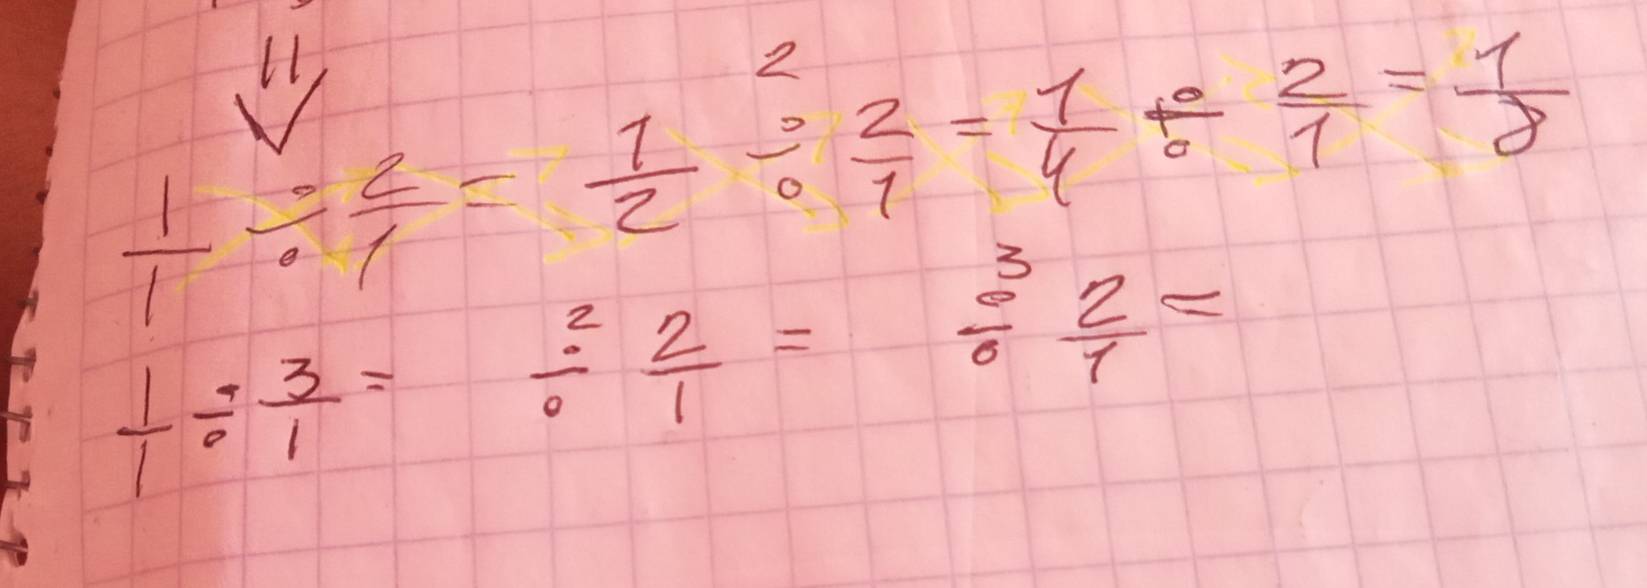 2
1/1 ÷ 2/1 = 1/2 ÷ 2/1 = 1/4 ÷ 2/1 = 1/8
2 3
1/1 ÷ 3/1 = ÷ 2/1 = ÷ 2/1 =